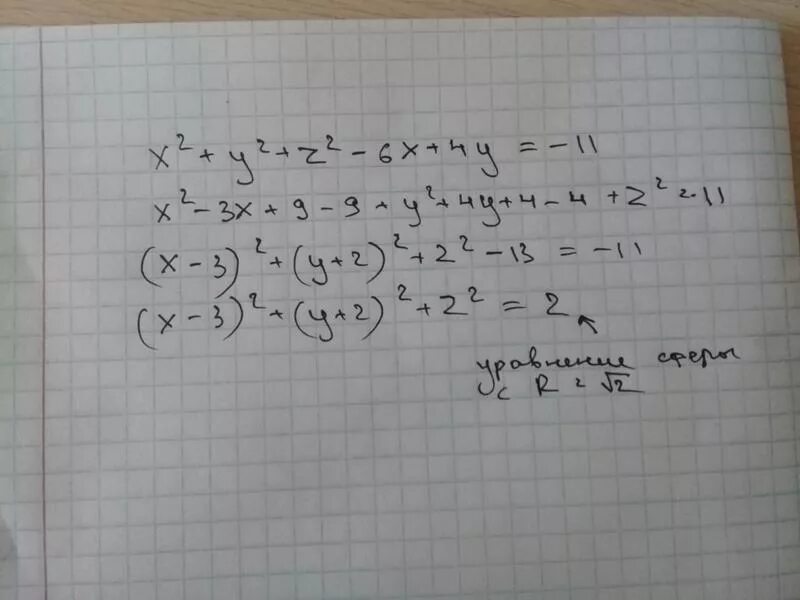 x² + y² + z² - 6x + 4y = -11
x² - 3x + 9 - 9 + y² + 4y + 4 - 4 + z² = -11
(x - 3)² + (y + 2)² + z² - 13 = -11
(x - 3)² + (y + 2)² + z² = 2
уравнение сферы
с R = √2